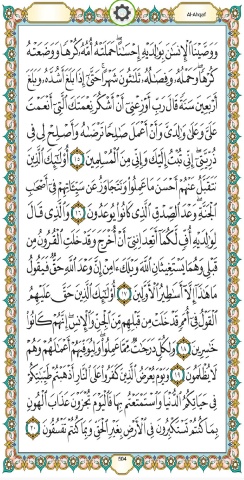 Al-Ahqaf
وَوَصَّيْنَا ٱلْإِنسَٰنَ بِوَٰلِدَيْهِ إِحْسَٰنًا ۖ حَمَلَتْهُ أُمُّهُۥ كُرْهًا وَوَضَعَتْهُ
كُرْهًا ۖ وَحَمْلُهُۥ وَفِصَٰلُهُۥ ثَلَٰثُونَ شَهْرًا ۚ حَتَّىٰٓ إِذَا بَلَغَ أَشُدَّهُۥ وَبَلَغَ
أَرْبَعِينَ سَنَةً قَالَ رَبِّ أَوْزِعْنِىٓ أَنْ أَشْكُرَ نِعْمَتَكَ ٱلَّتِىٓ أَنْعَمْتَ
عَلَىَّ وَعَلَىٰ وَٰلِدَىَّ وَأَنْ أَعْمَلَ صَٰلِحًا تَرْضَىٰهُ وَأَصْلِحْ لِى فِى
ذُرِّيَّتِىٓ ۖ إِنِّى تُبْتُ إِلَيْكَ وَإِنِّى مِنَ ٱلْمُسْلِمِينَ ١٥ أُو۟لَٰٓئِكَ ٱلَّذِينَ
نَتَقَبَّلُ عَنْهُمْ أَحْسَنَ مَا عَمِلُوا۟ وَنَتَجَاوَزُ عَن سَيِّـَٔاتِهِمْ فِىٓ أَصْحَٰبِ
ٱلْجَنَّةِ ۖ وَعْدَ ٱلصِّدْقِ ٱلَّذِى كَانُوا۟ يُوعَدُونَ ١٦ وَٱلَّذِى قَالَ
لِوَٰلِدَيْهِ أُفٍّ لَّكُمَآ أَتَعِدَانِنِىٓ أَنْ أُخْرَجَ وَقَدْ خَلَتِ ٱلْقُرُونُ مِن
قَبْلِى وَهُمَا يَسْتَغِيثَانِ ٱللَّهَ وَيْلَكَ ءَامِنْ إِنَّ وَعْدَ ٱللَّهِ حَقٌّ فَيَقُولُ
مَا هَٰذَآ إِلَّآ أَسَٰطِيرُ ٱلْأَوَّلِينَ ١٧ أُو۟لَٰٓئِكَ ٱلَّذِينَ حَقَّ عَلَيْهِمُ
ٱلْقَوْلُ فِىٓ أُمَمٍ قَدْ خَلَتْ مِن قَبْلِهِم مِّنَ ٱلْجِنِّ وَٱلْإِنسِ ۖ إِنَّهُمْ كَانُوا۟
خَٰسِرِينَ ١٨ وَلِكُلٍّ دَرَجَٰتٌ مِّمَّا عَمِلُوا۟ ۖ وَلِيُوَفِّيَهُمْ أَعْمَٰلَهُمْ وَهُمْ
لَا يُظْلَمُونَ ١٩ وَيَوْمَ يُعْرَضُ ٱلَّذِينَ كَفَرُوا۟ عَلَى ٱلنَّارِ أَذْهَبْتُمْ طَيِّبَٰتِكُمْ
فِى حَيَاتِكُمُ ٱلدُّنْيَا وَٱسْتَمْتَعْتُم بِهَا فَٱلْيَوْمَ تُجْزَوْنَ عَذَابَ ٱلْهُونِ
بِمَا كُنتُمْ تَسْتَكْبِرُونَ فِى ٱلْأَرْضِ بِغَيْرِ ٱلْحَقِّ وَبِمَا كُنتُمْ تَفْسُقُونَ ٢٠
504